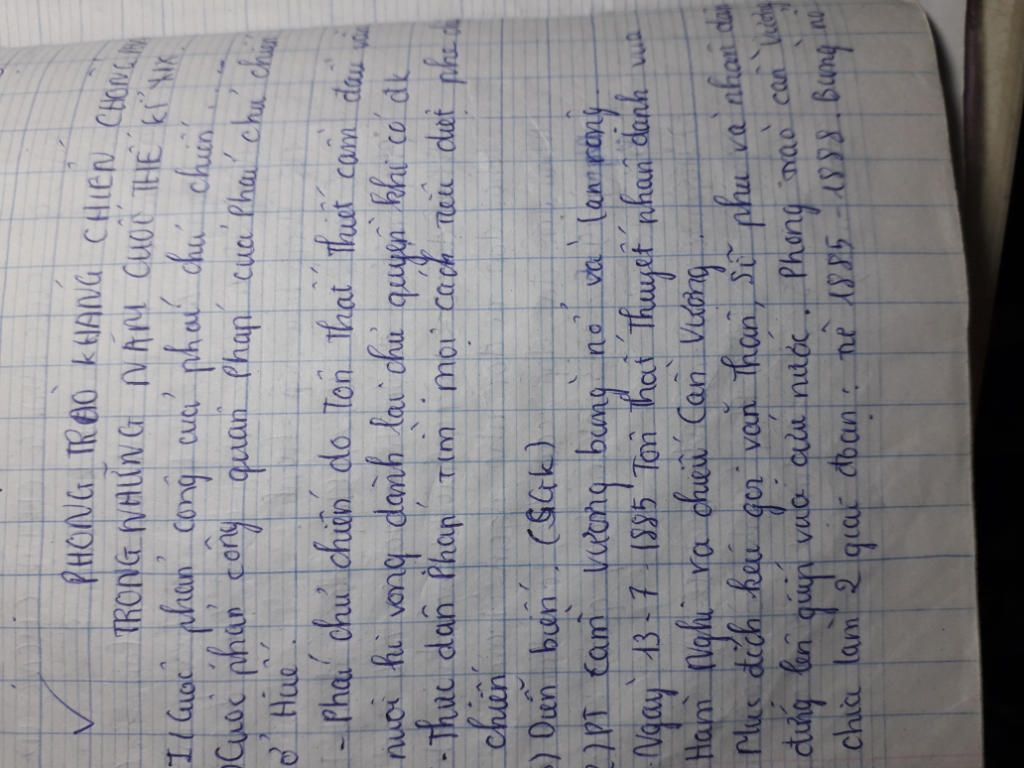 PHONG TRÀO KHÁNG CHIẾN CHỐNG
TRONG NHỮNG NĂM CUỐI THẾ KỈ XIX
I (Cuộc phản công của phái chủ chiến
)Cuộc phản công quân Pháp của Phái chủ chiến
ở Huế.
- Phái chủ chiến do Tôn Thất Thiết cầm đầu
nuôi hi vọng dành lại chủ quyền khi có đk
- Thực dân Pháp tìm mọi cách tiêu diệt phe
chiến
) Diễn biến. (SGk)
2) PT Cần vương bùng nổ và lan rộng
. Ngày 13-7-1885 Tôn Thất Thuyết phân danh vua
Hàm Nghi ra chiếu Cần Vương.
Mục đích kêu gọi văn thân, sĩ phu và nhân dân
đứng lên giúp vua cứu nước. Phong trào cần vương
chia làm 2 giai đoạn: nè 1885-1888. Bùng